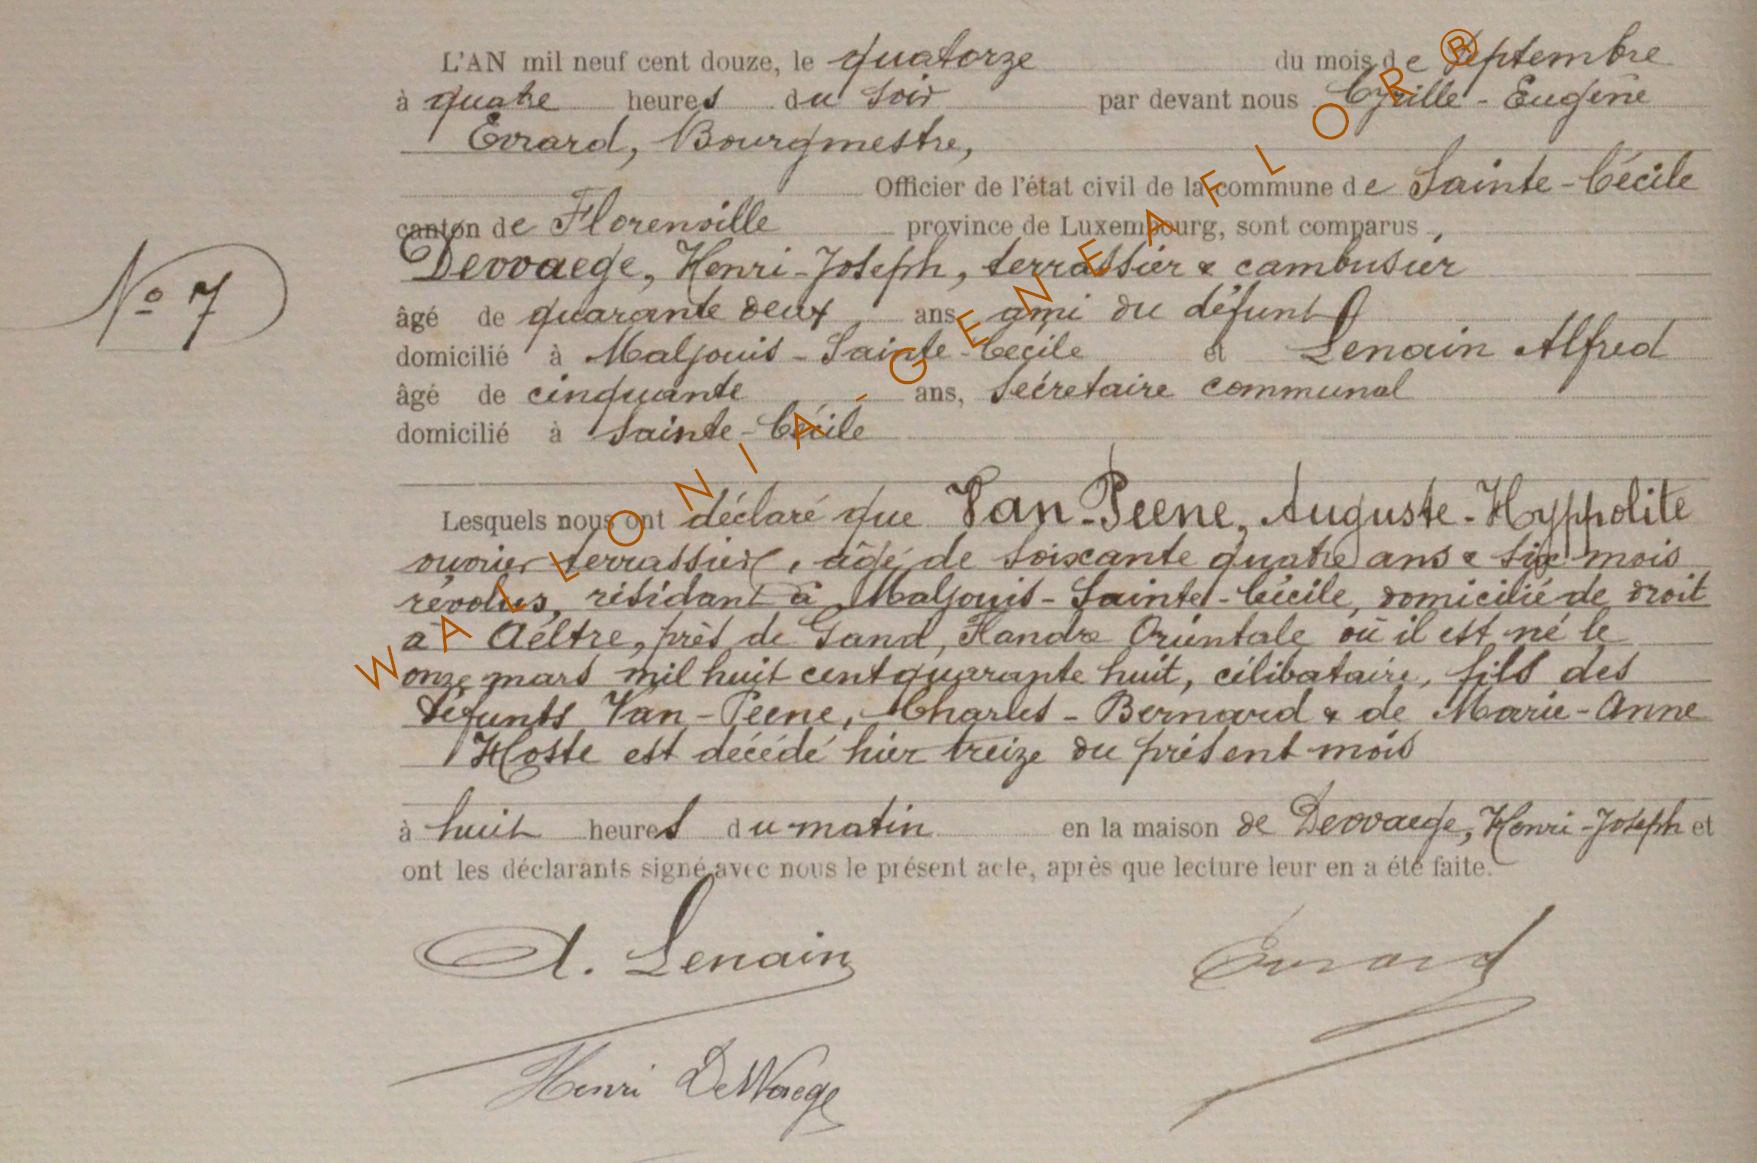 L'AN mil neuf cent douze, le quatorze du mois de Septembre
à quatre heures du soir par devant nous Cyrille-Eugène
Evrard, Bourgmestre,
Officier de l'état civil de la commune de Sainte-Cécile
canton de Florenville province de Luxembourg, sont comparus
Devvaege, Henri-Joseph, terrassier & cambusier
N° 7
âgé de quarante deux ans, ami du défunt
domicilié à Maljouis-Sainte-Cécile et Lenain Alfred
âgé de cinquante ans, secrétaire communal
domicilié à Sainte-Cécile
Lesquels nous ont déclaré que Van-Peene, Auguste-Hyppolite
ouvrier terrassier, âgé de soixante quatre ans & six mois
révolus, résidant à Maljouis-Sainte-Cécile, domicilié de droit
à Aeltre, près de Gand, Flandre Orientale où il est né le
onze mars mil huit cent quarante huit, célibataire, fils des
défunts Van-Peene, Charles-Bernard & de Marie-Anne
Hoste est décédé hier treize du présent mois
à huit heures du matin en la maison de Devvaege, Henri-Joseph et
ont les déclarants signé avec nous le présent acte, après que lecture leur en a été faite.
A. Lenain Evrard
Henri DeWaege
WALLONIA-GENEAFLOR®